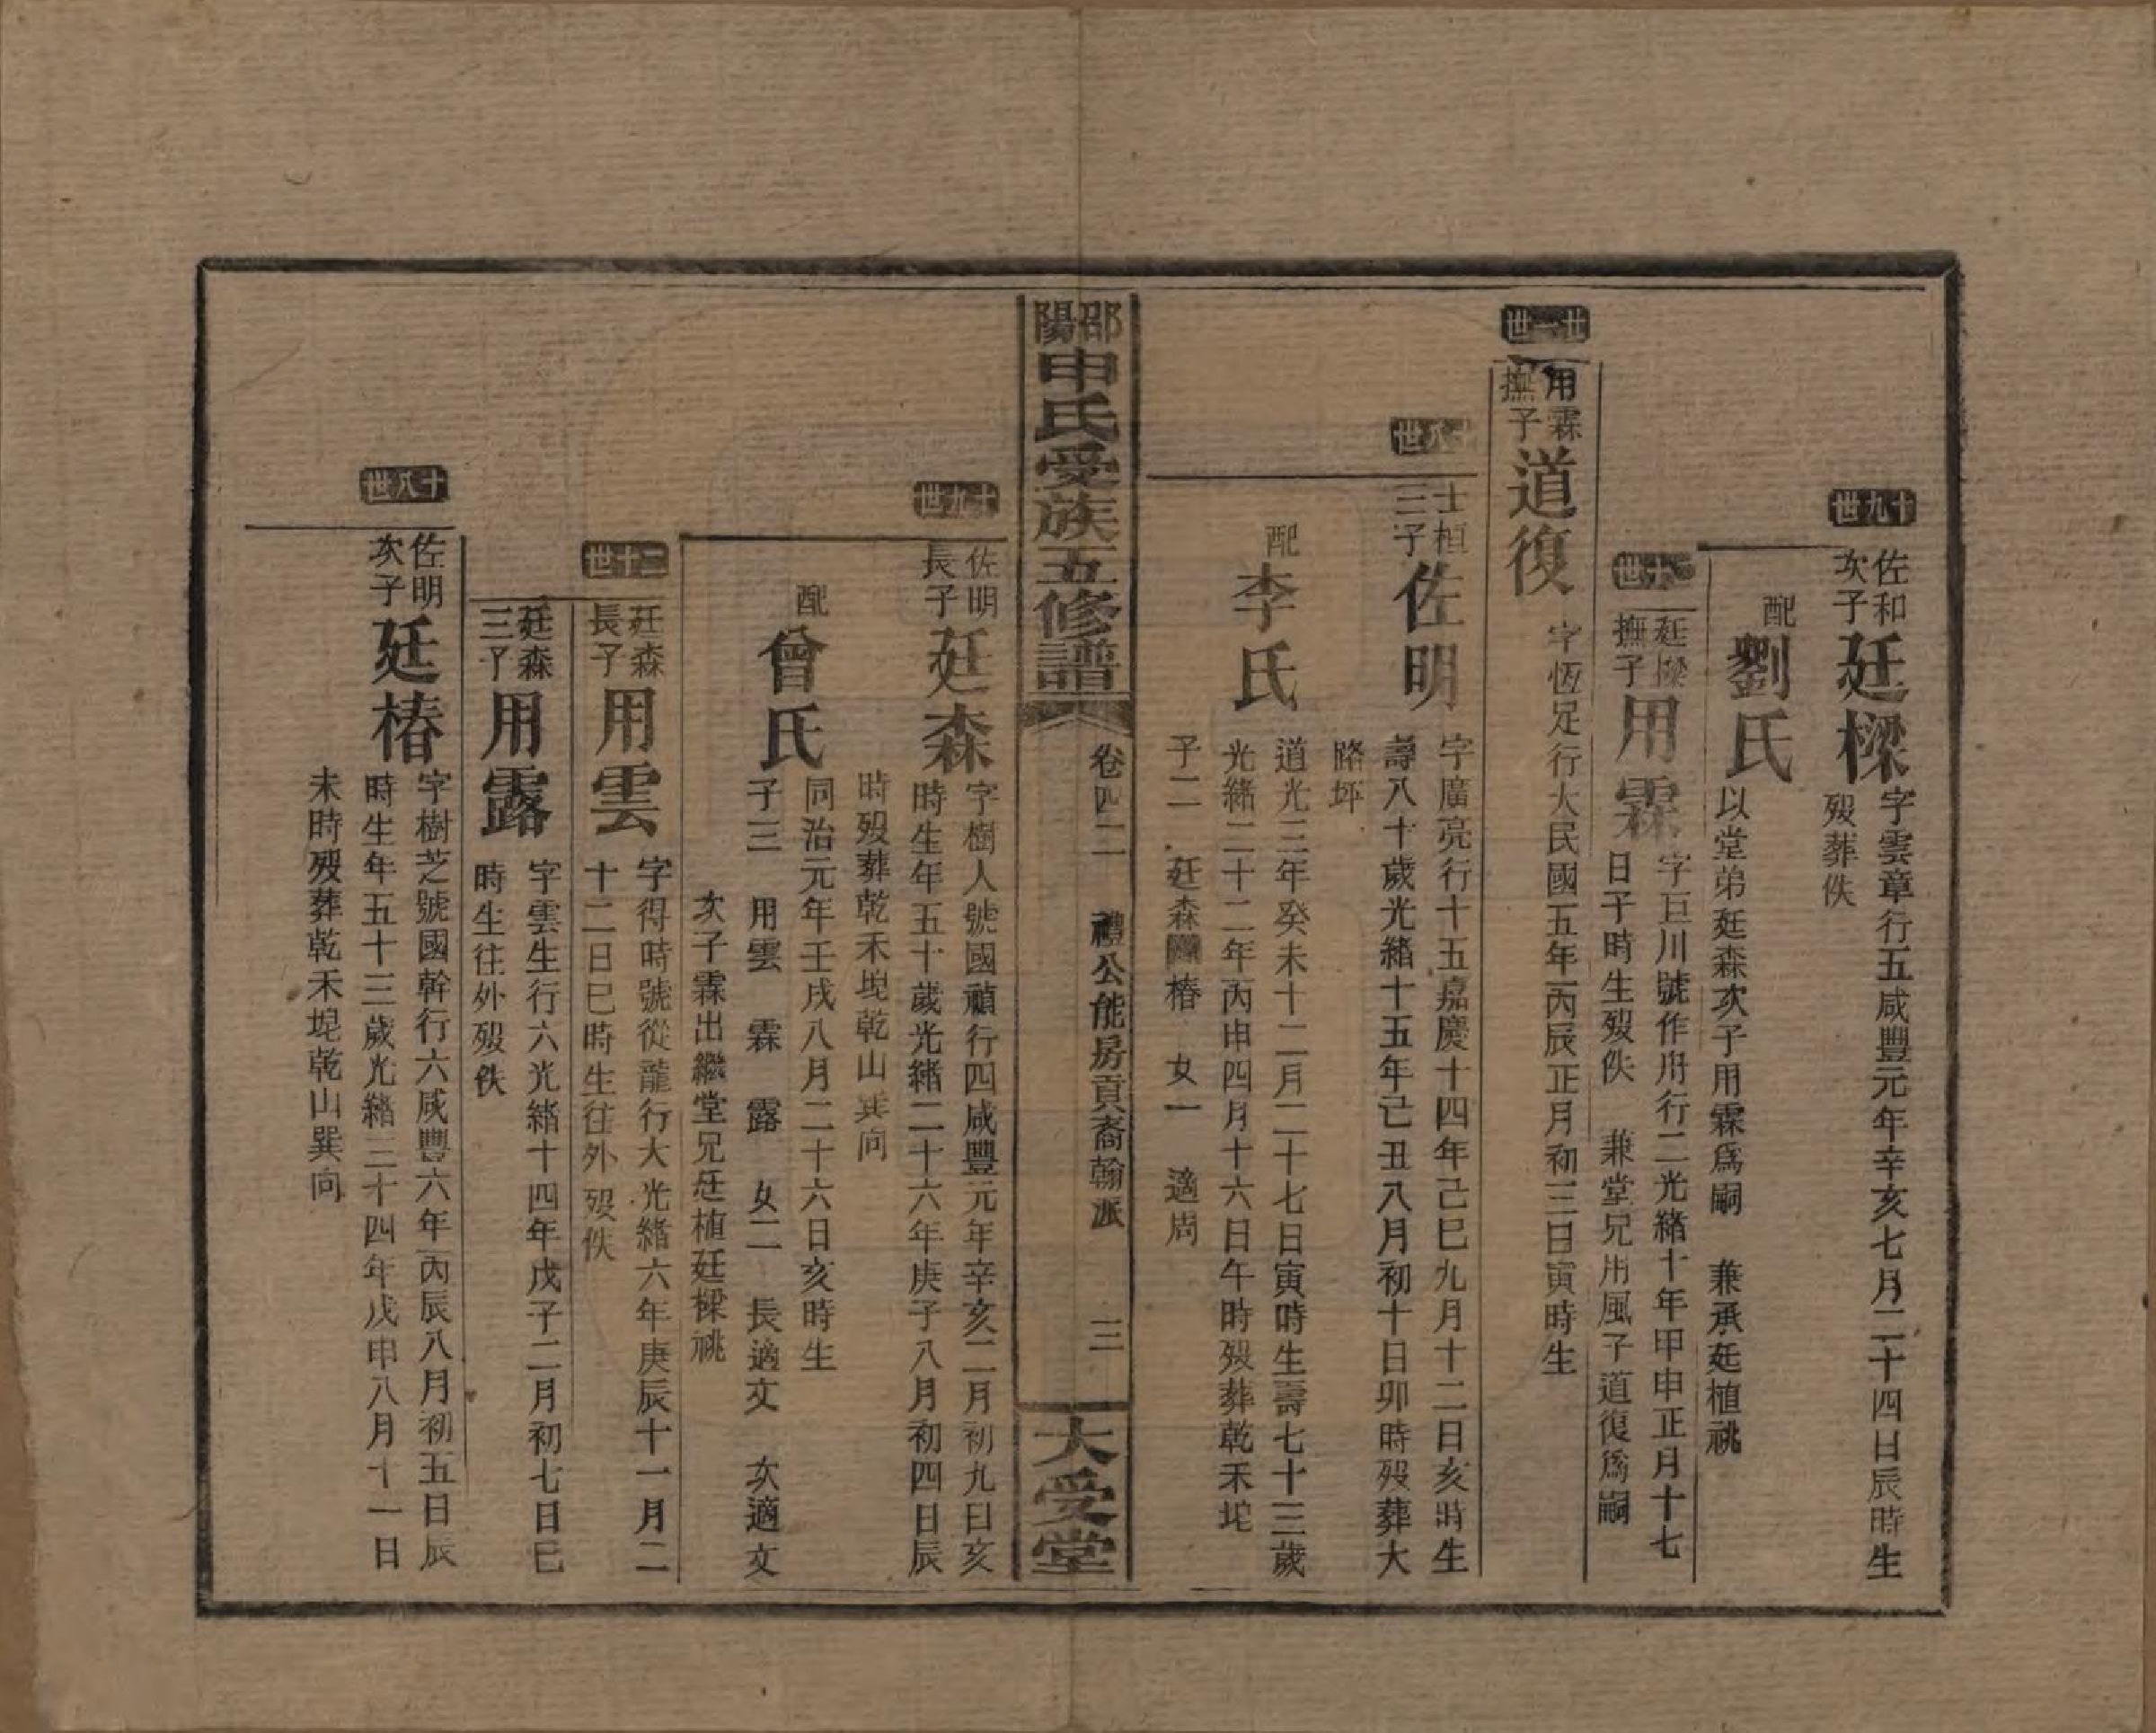 十九世
佐和
次子
廷樑
字雲章行五咸豐元年辛亥七月二十四日辰時生
歿葬佚
配
劉氏
以堂弟廷森次子用霖爲嗣　兼承廷植祧
二十世
廷樑
撫子
用霖
字巨川號作舟行二光緒十年甲申正月十七
日子時生歿佚　兼堂兄用風子道復爲嗣
廿一世
用霖
撫子
道復
字恆足行大民國五年丙辰正月初三日寅時生
十八世
士桓
三子
佐明
字廣亮行十五嘉慶十四年己巳九月十二日亥時生
壽八十歲光緒十五年己丑八月初十日卯時歿葬大
路坪
配
李氏
道光三年癸未十二月二十七日寅時生壽七十三歲
光緒二十二年丙申四月十六日午時歿葬乾禾坨
子二　廷森　椿　女一　適周
邵陽申氏受族五修譜
卷四二　禮公能房貢裔翰派　三
大受堂
十九世
佐明
長子
廷森
字樹人號國禎行四咸豐元年辛亥二月初九日亥
時生年五十歲光緒二十六年庚子八月初四日辰
時歿葬乾禾坨乾山巽向
配
曾氏
同治元年壬戌八月二十六日亥時生
子三　用雲　霖　露　女二　長適文　次適文
次子霖出繼堂兄廷植廷樑祧
二十世
廷森
長子
用雲
字得時號從龍行大光緒六年庚辰十一月二
十二日巳時生往外歿佚
廷森
三子
用露
字雲生行六光緒十四年戊子二月初七日巳
時生往外歿佚
十八世
佐明
次子
廷椿
字樹芝號國幹行六咸豐六年丙辰八月初五日辰
時生年五十三歲光緒三十四年戊申八月十一日
未時歿葬乾禾坨乾山巽向